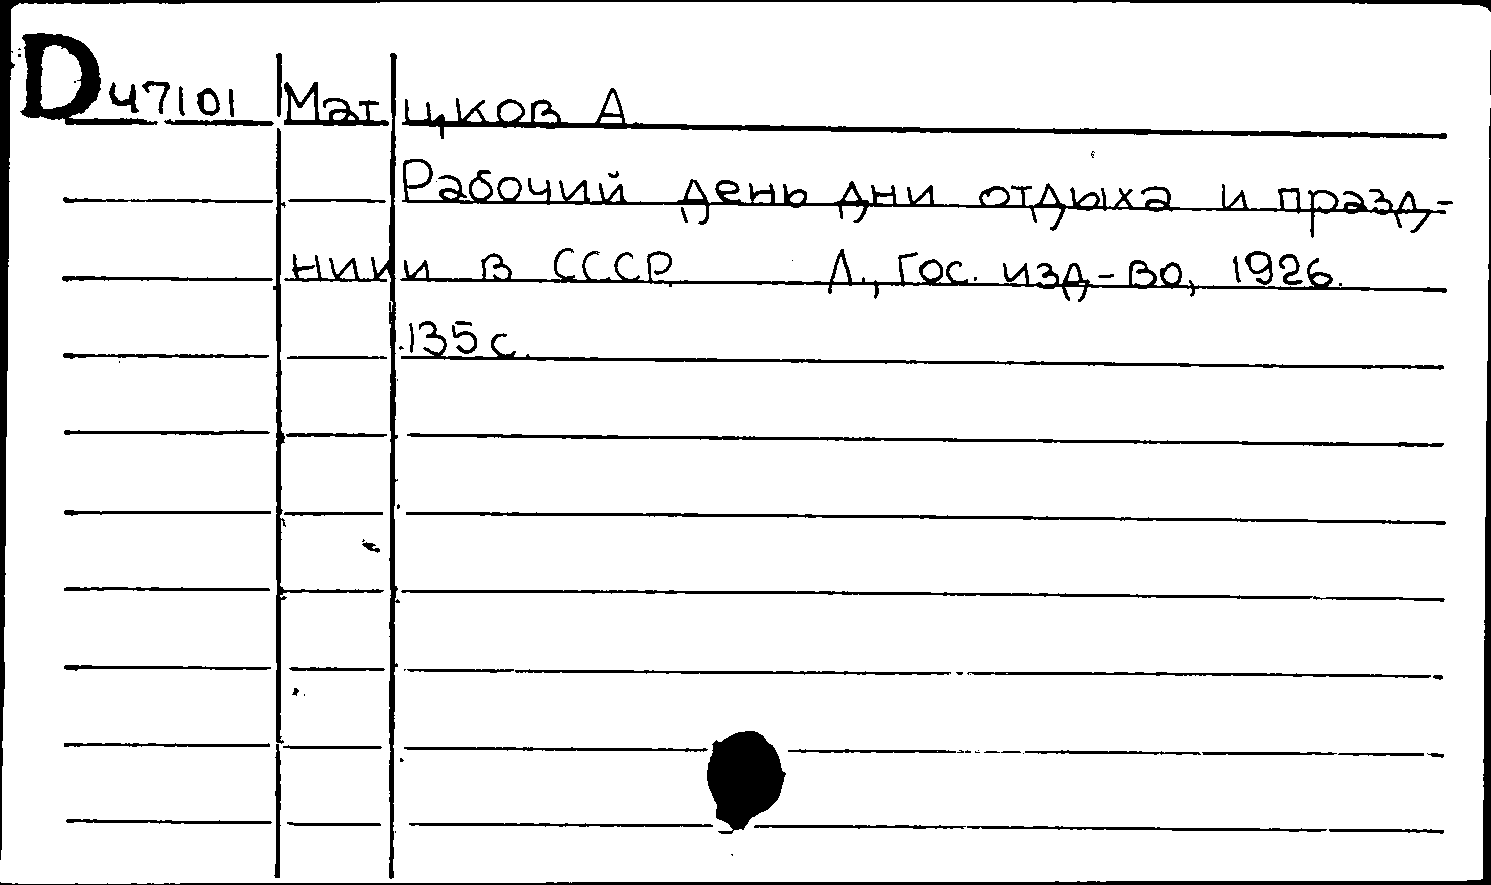 D47101 Матцков А
Рабочий день дни отдыха и празд-
ники в СССР Л., Гос. изд-во, 1926.
135 с.